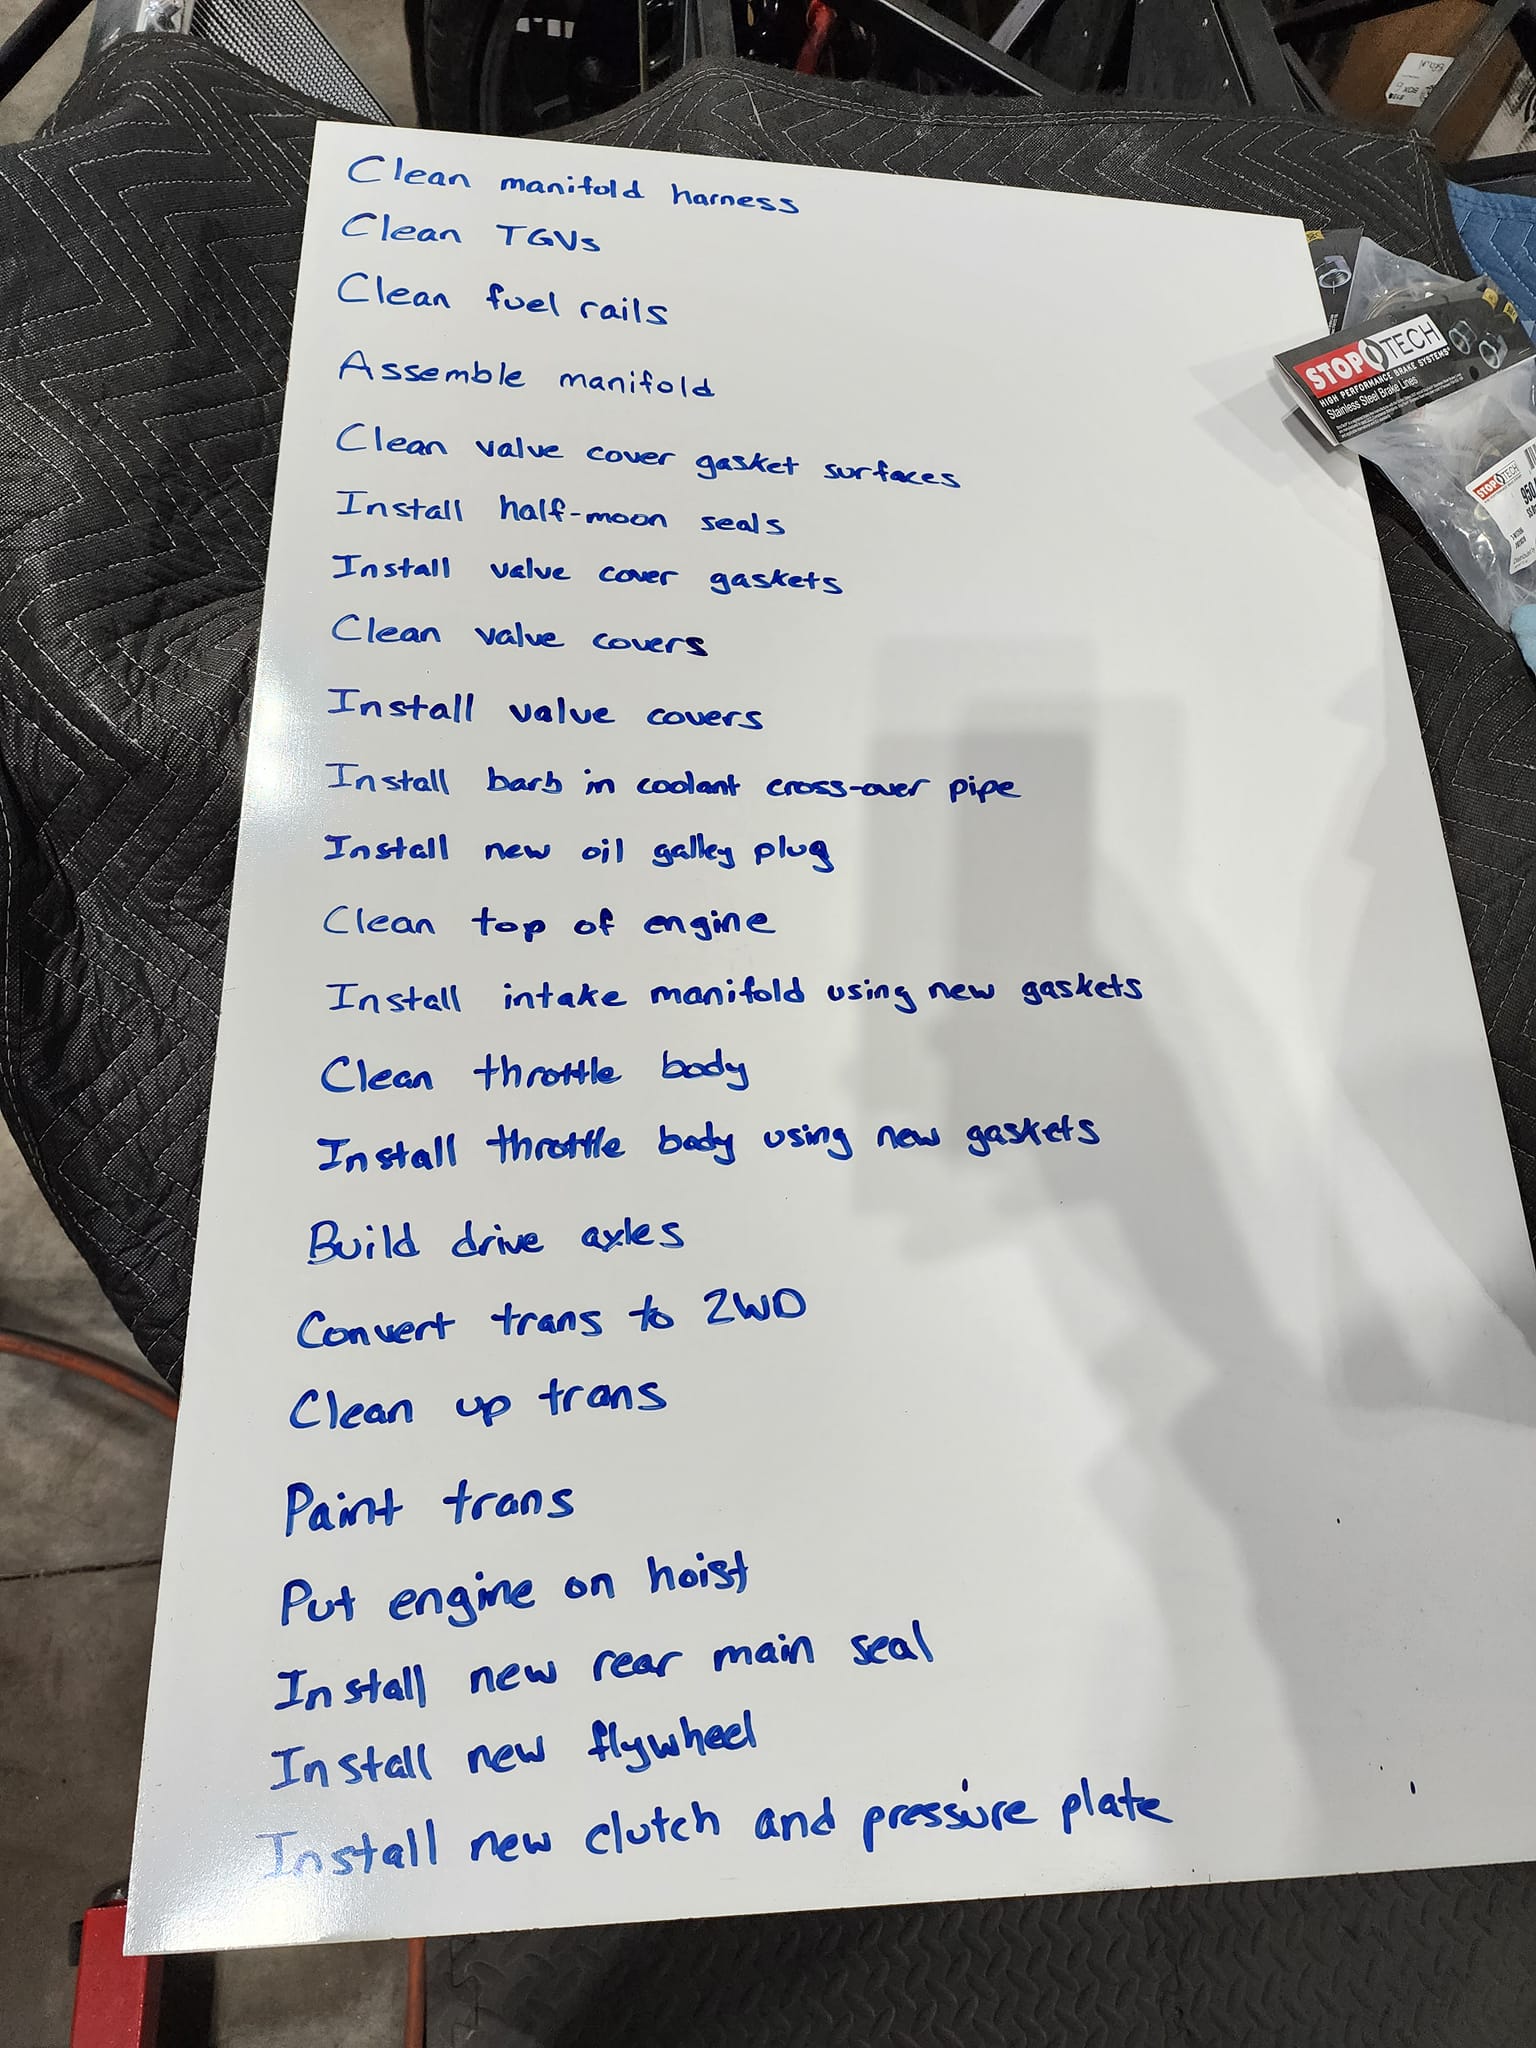 Clean manifold harness
Clean TGVs
Clean fuel rails
Assemble manifold
Clean valve cover gasket surfaces
Install half-moon seals
Install valve cover gaskets
Clean valve covers
Install valve covers
Install barb in coolant cross-over pipe
Install new oil galley plug
Clean top of engine
Install intake manifold using new gaskets
Clean throttle body
Install throttle body using new gaskets
Build drive axles
Convert trans to 2WD
Clean up trans
Paint trans
Put engine on hoist
Install new rear main seal
Install new flywheel
Install new clutch and pressure plate
STOPTECH
HIGH PERFORMANCE BRAKE SYSTEMS
Stainless Steel Brake Lines
STOPTECH